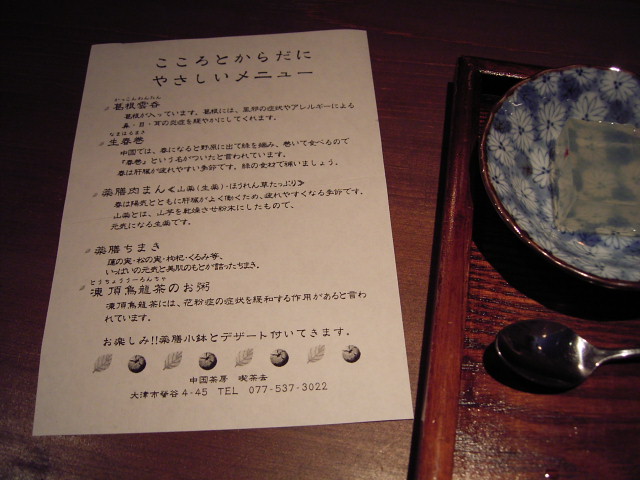 こころとからだに
やさしいメニュー
かっこんわんたん
葛根雲呑
葛根が入っています。葛根には、風邪の症状やアレルギーによる
鼻・目・耳の炎症を緩やかにしてくれます。
なまはるまき
生春巻
中国では、春になると野原に出て緑を摘み、巻いて食べるので
「春巻」という名がついたと言われています。
春は肝臓が疲れやすい季節です。緑の食材で補いましょう。
薬膳肉まん≪山薬(生薬)・ほうれん草たっぷり≫
春は陽気とともに肝臓がよく働くため、疲れやすくなる季節です。
山薬とは、山芋を乾燥させ粉末にしたもので、
元気になる生薬です。
薬膳ちまき
蓮の実・松の実・枸杞・くるみ等、
いっぱいの元気と美肌のもとが詰ったちまき。
とうちょううーろんちゃ
凍頂烏龍茶のお粥
凍頂烏龍茶には、花粉症の症状を緩和する作用があると言わ
れています。
お楽しみ!!薬膳小鉢とデザート付いてきます。
中国茶房 喫茶去
大津市螢谷4-45 TEL 077-537-3022